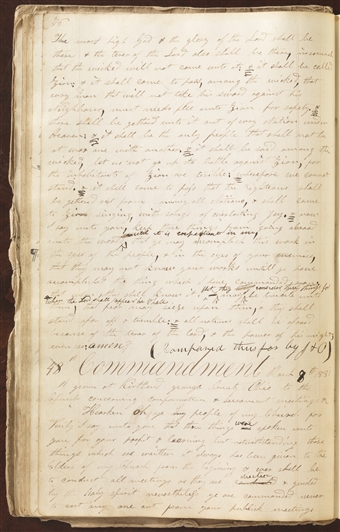 76
The most high God & the glory of the Lord shall be
there & the teror of the Lord also shall be there insomuch
that the wicked will not come unto it & it shall be called
Zion & it shall come to pass among the wicked, that
every man that will not take his sword against his
neighbour, must needs flee unto Zion for safety &
there shall be gathered unto it out of every nation under
heaven & it shall be the only people that shall not be
at war one with another & it shall be said among the
wicked, let us not go up to battle against Zion, for
the inhabitants of Zion are terrible wherefore we cannot
stand & it shall come to pass that the righteous shall
be gathered out from among all nations, & shall come
to Zion singing, with songs of everlasting joy & now
I say unto you keep these things from going abroad
unto the world
until it is expedient in me
that ye may accomplish this work in
the eyes of the people, & in the eyes of your enemies,
that they may not know your works until ye have
accomplished the thing which I have commanded you
that when they shall know it that they may consider these things for
when the Lord shall appear he shall be
terrible unto
them, that fear may seize upon them, & they shall
stand afar off & tremble & all nations shall be afraid
because of the terror of the Lord, & the power of his might
even so amen
(Compared thus far by J & O)
48th Commandment March 8th 1831
A given at Kirtland geauga County Ohio to the
Church concerning confirmation & Sacrament meetings &c
Hearken Oh ye people of my Church for
Verily I say unto you that these things were spoken unto
you for your profit & learning but notwithstanding those
things which are written it always has been given to the
Elders of my Church from the begining & ever shall be
to conduct all meetings as they are directed & guided
by the Holy Spirit nevertheless ye are commanded never
to cast any one out from your publick meetings